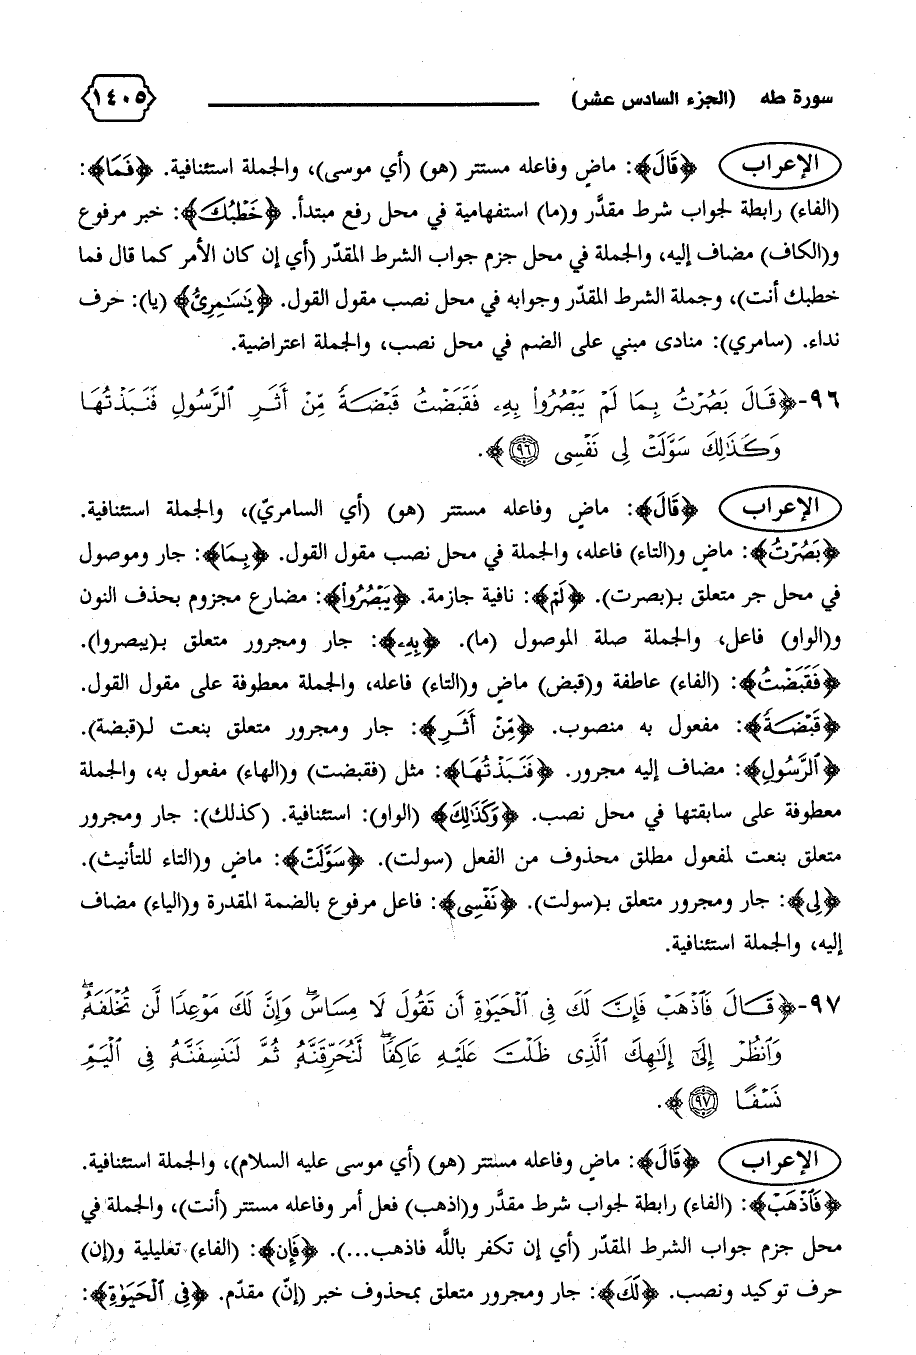 سورة طه (الجزء السادس عشر) ١٤٠٥
الإعراب ﴿قَالَ﴾: ماضٍ وفاعله مستتر (هو) (أي موسى)، والجملة استئنافية. ﴿فَمَا﴾:
(الفاء) رابطة لجواب شرط مقدَّر و(ما) استفهامية في محل رفع مبتدأ. ﴿خَطْبُكَ﴾: خبر مرفوع
و(الكاف) مضاف إليه، والجملة في محل جزم جواب الشرط المقدّر (أي إن كان الأمر كما قال فما
خطبك أنت)، وجملة الشرط المقدّر وجوابه في محل نصب مقول القول. ﴿يَسَٰمِرِيُّ﴾ (يا): حرف
نداء. (سامري): منادى مبني على الضم في محل نصب، والجملة اعتراضية.
٩٦-﴿قَالَ بَصُرْتُ بِمَا لَمْ يَبْصُرُوا۟ بِهِۦ فَقَبَضْتُ قَبْضَةً مِّنْ أَثَرِ ٱلرَّسُولِ فَنَبَذْتُهَا
وَكَذَٰلِكَ سَوَّلَتْ لِى نَفْسِى ٩٦﴾.
الإعراب ﴿قَالَ﴾: ماضٍ وفاعله مستتر (هو) (أي السامريّ)، والجملة استئنافية.
﴿بَصُرْتُ﴾: ماضٍ و(التاء) فاعله، والجملة في محل نصب مقول القول. ﴿بِمَا﴾: جار وموصول
في محل جر متعلق بـ(بصرت). ﴿لَمْ﴾: نافية جازمة. ﴿يَبْصُرُوا۟﴾: مضارع مجزوم بحذف النون
و(الواو) فاعل، والجملة صلة الموصول (ما). ﴿بِهِۦ﴾: جار ومجرور متعلق بـ(يبصروا).
﴿فَقَبَضْتُ﴾: (الفاء) عاطفة و(قبض) ماضٍ و(التاء) فاعله، والجملة معطوفة على مقول القول.
﴿قَبْضَةً﴾: مفعول به منصوب. ﴿مِّنْ أَثَرِ﴾: جار ومجرور متعلق بنعت لـ(قبضة).
﴿ٱلرَّسُولِ﴾: مضاف إليه مجرور. ﴿فَنَبَذْتُهَا﴾: مثل (فقبضت) و(الهاء) مفعول به، والجملة
معطوفة على سابقتها في محل نصب. ﴿وَكَذَٰلِكَ﴾ (الواو): استئنافية. (كذلك): جار ومجرور
متعلق بنعت لمفعول مطلق محذوف من الفعل (سولت). ﴿سَوَّلَتْ﴾: ماضٍ و(التاء للتأنيث).
﴿لِى﴾: جار ومجرور متعلق بـ(سولت). ﴿نَفْسِى﴾: فاعل مرفوع بالضمة المقدرة و(الياء) مضاف
إليه، والجملة استئنافية.
٩٧-﴿قَالَ فَٱذْهَبْ فَإِنَّ لَكَ فِى ٱلْحَيَوٰةِ أَن تَقُولَ لَا مِسَاسَ ۖ وَإِنَّ لَكَ مَوْعِدًا لَّن تُخْلَفَهُۥ ۖ
وَٱنظُرْ إِلَىٰٓ إِلَٰهِكَ ٱلَّذِى ظَلْتَ عَلَيْهِ عَاكِفًا ۖ لَّنُحَرِّقَنَّهُۥ ثُمَّ لَنَنسِفَنَّهُۥ فِى ٱلْيَمِّ
نَسْفًا ٩٧﴾.
الإعراب ﴿قَالَ﴾: ماضٍ وفاعله مستتر (هو) (أي موسى عليه السلام)، والجملة استئنافية.
﴿فَٱذْهَبْ﴾: (الفاء) رابطة لجواب شرط مقدَّر و(اذهب) فعل أمر وفاعله مستتر (أنت)، والجملة في
محل جزم جواب الشرط المقدّر (أي إن تكفر باللَّه فاذهب...). ﴿فَإِن﴾: (الفاء) تعليلية و(إن)
حرف توكيد ونصب. ﴿لَكَ﴾: جار ومجرور متعلق بمحذوف خبر (إنّ) مقدّم. ﴿فِى ٱلْحَيَوٰةِ﴾: